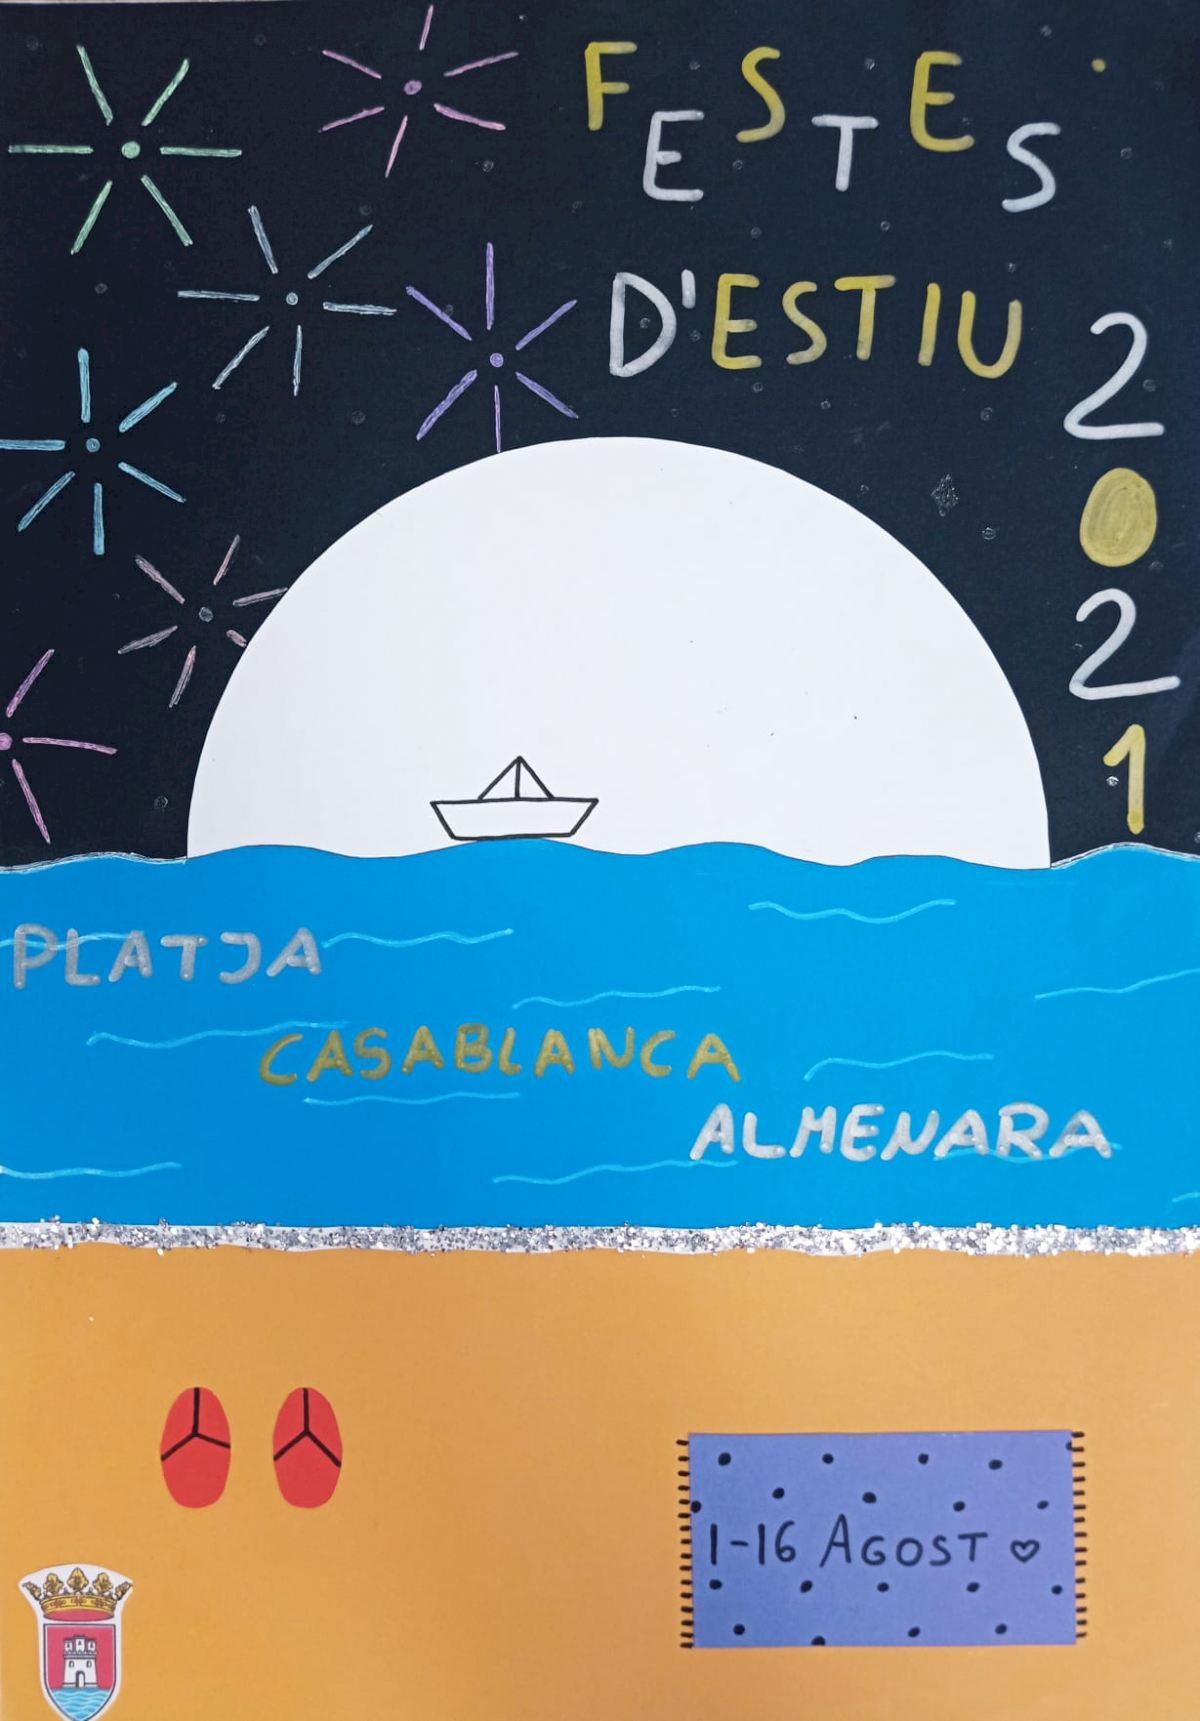 FESTES
D'ESTIU
2021
PLATJA
CASABLANCA
ALMENARA
1-16 AGOST